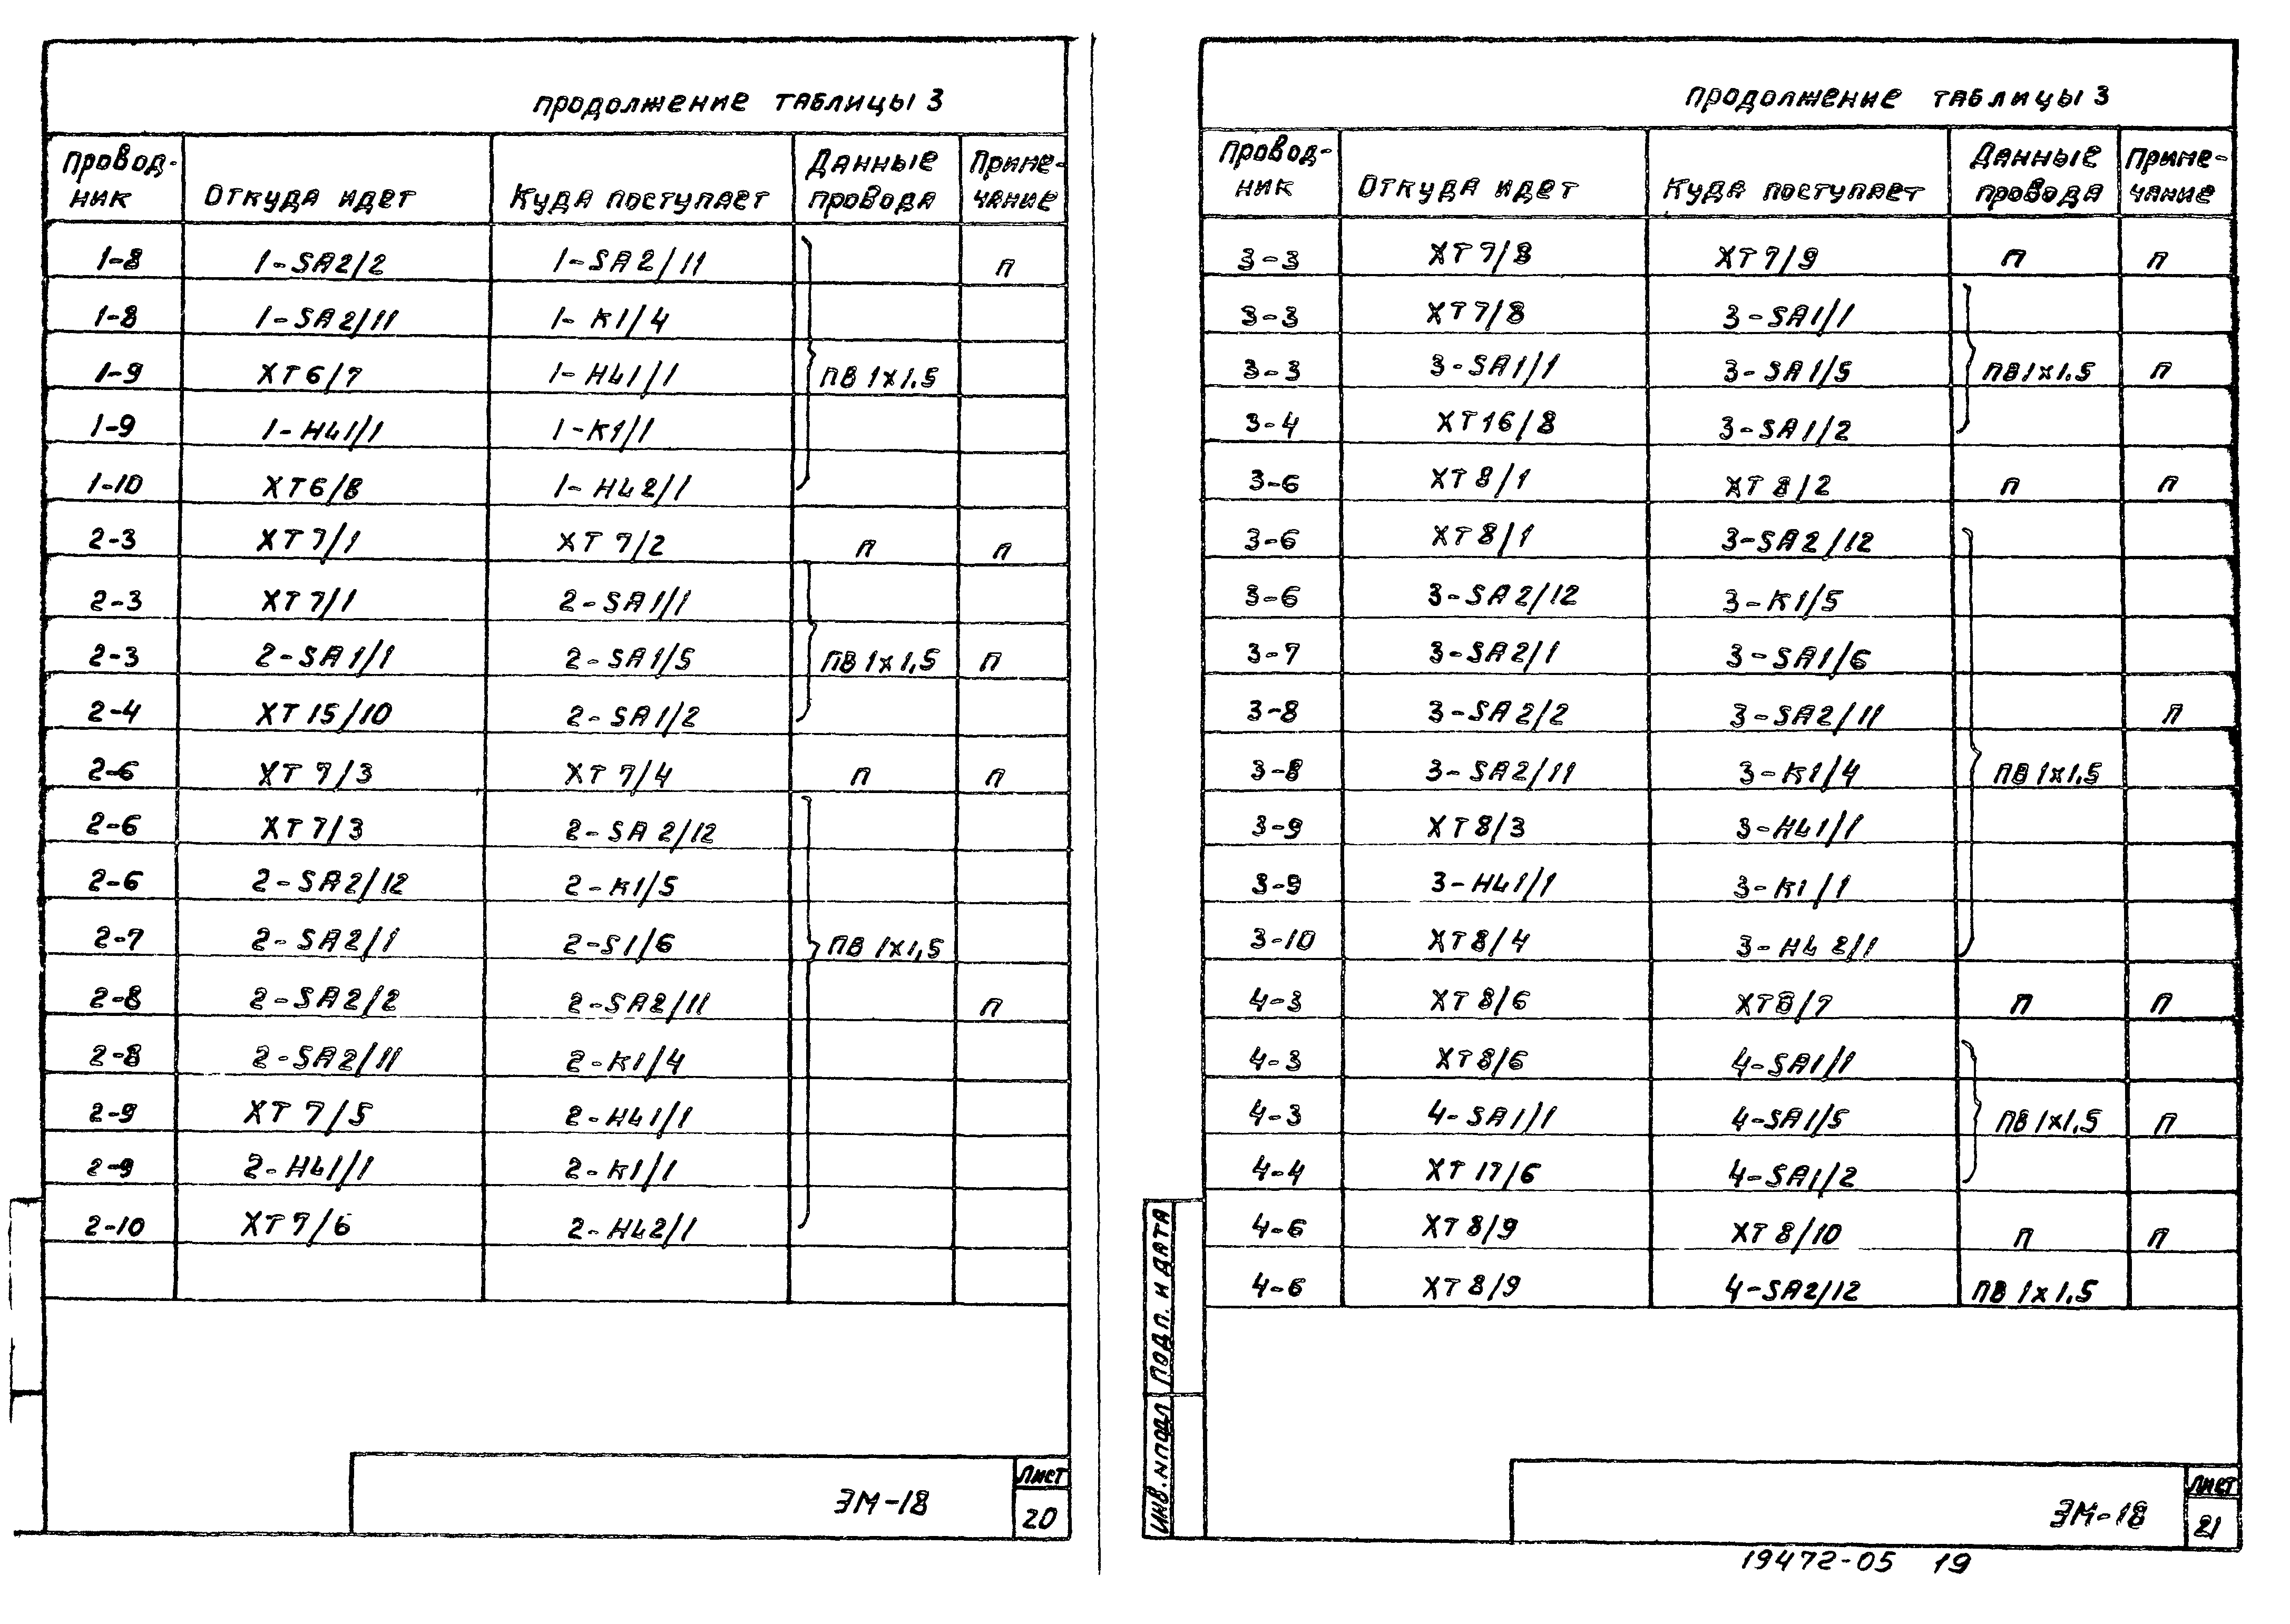 продолжение таблицы 3
Провод- Данные Приме-
ник Откуда идет Куда поступает провода чание
1-8 1-SA2/2 1-SA2/11 п
1-8 1-SA2/11 1-K1/4
1-9 XT6/7 1-HL1/1 ПВ 1х1.5
1-9 1-HL1/1 1-K1/1
1-10 XT6/8 1-HL2/1
2-3 XT7/1 XT7/2 п п
2-3 XT7/1 2-SA1/1
2-3 2-SA1/1 2-SA1/5 ПВ 1х1,5 п
2-4 XT15/10 2-SA1/2
2-6 XT7/3 XT7/4 п п
2-6 XT7/3 2-SA2/12
2-6 2-SA2/12 2-K1/5
2-7 2-SA2/1 2-S1/6 ПВ 1х1,5
2-8 2-SA2/2 2-SA2/11 п
2-8 2-SA2/11 2-K1/4
2-9 XT7/5 2-HL1/1
2-9 2-HL1/1 2-K1/1
2-10 XT7/6 2-HL2/1
ЭМ-18
Лист
20
продолжение таблицы 3
Провод- Данные Приме-
ник Откуда идет Куда поступает провода чание
3-3 XT7/8 XT7/9 п п
3-3 XT7/8 3-SA1/1
3-3 3-SA1/1 3-SA1/5 ПВ1х1.5 п
3-4 XT16/8 3-SA1/2
3-6 XT8/1 XT8/2 п п
3-6 XT8/1 3-SA2/12
3-6 3-SA2/12 3-K1/5
3-7 3-SA2/1 3-SA1/6
3-8 3-SA2/2 3-SA2/11 п
3-8 3-SA2/11 3-K1/4 ПВ 1х1,5
3-9 XT8/3 3-HL1/1
3-9 3-HL1/1 3-K1/1
3-10 XT8/4 3-HL2/1
4-3 XT8/6 XT8/7 п п
4-3 XT8/6 4-SA1/1
4-3 4-SA1/1 4-SA1/5 ПВ 1х1,5 п
4-4 XT17/6 4-SA1/2
4-6 XT8/9 XT8/10 п п
4-6 XT8/9 4-SA2/12 ПВ 1х1.5
ИНВ. N ПОДЛ ПОДП. И ДАТА
ЭМ-18
Лист
21
19472-05 19